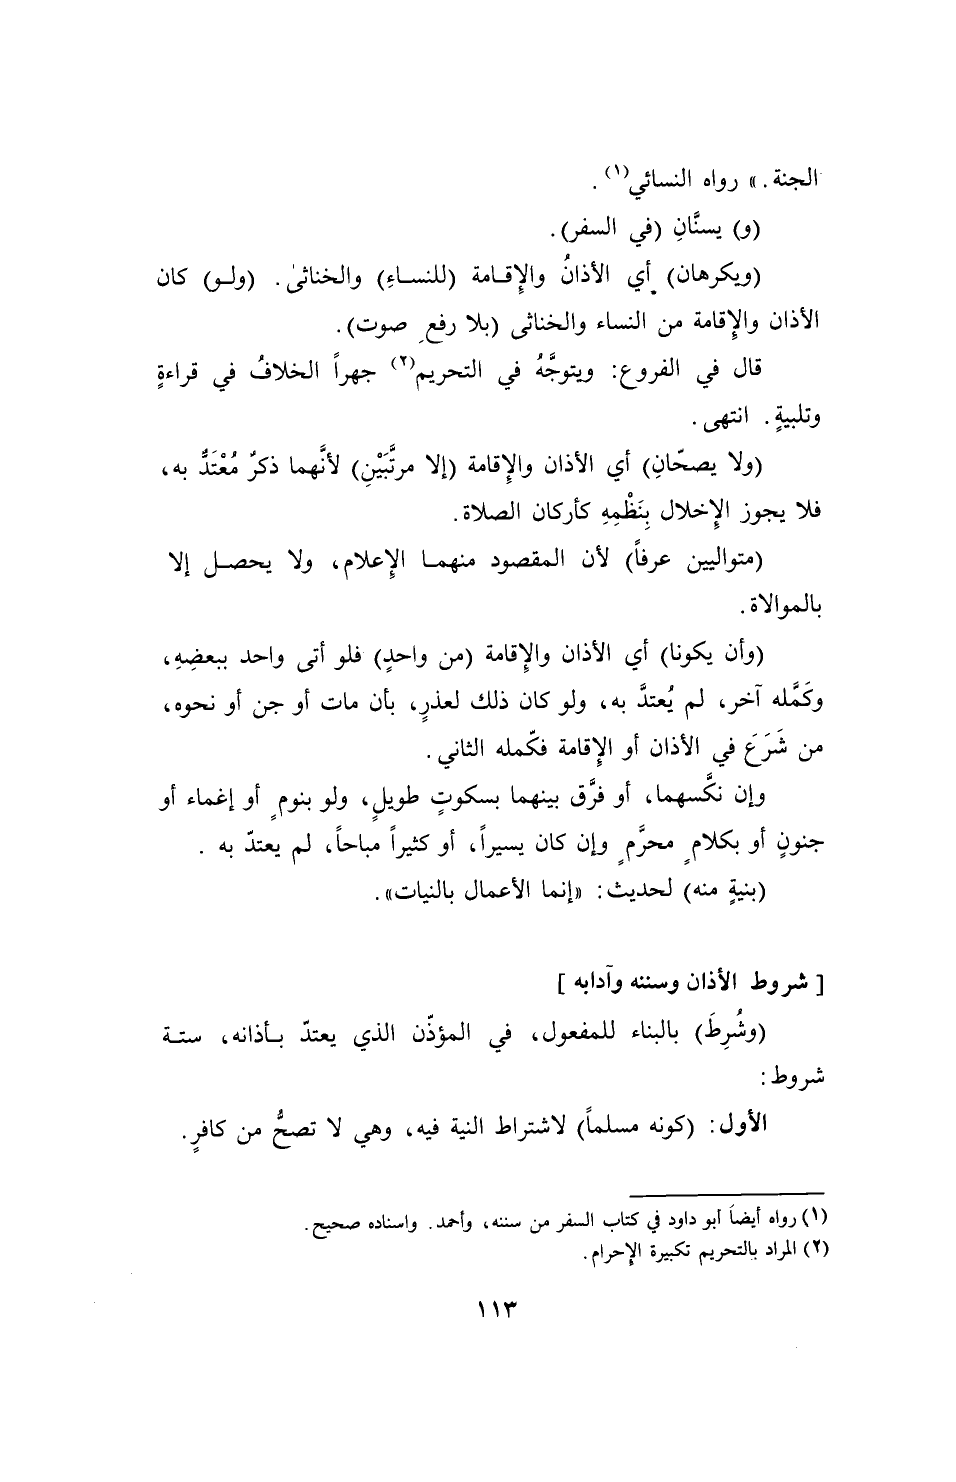 الجنة. » رواه النسائي(١).
(و) يسنَّانِ (في السفر).
(ويكرهان) أي الأذانُ والإِقـامة (للنسـاءِ) والخناثىٰ. (ولـو) كان
الأذان والإِقامة من النساء والخناثى (بلا رفعِ صوت).
قال في الفروع: ويتوجَّهُ في التحريم(٢) جهراً الخلافُ في قراءةٍ
وتلبيةٍ. انتهى.
(ولا يصحّانِ) أي الأذان والإِقامة (إلا مرتَّبَيْنِ) لأنَّهما ذكرٌ مُعْتَدٌّ به،
فلا يجوز الإِخلال بِنَظْمِهِ كأركان الصلاة.
(متواليين عرفاً) لأن المقصود منهمـا الإِعلام، ولا يحصـل إلا
بالموالاة.
(وأن يكونا) أي الأذان والإِقامة (من واحدٍ) فلو أتى واحد ببعضِهِ،
وكَمَّله آخر، لم يُعتدَّ به، ولو كان ذلك لعذرٍ، بأن مات أو جن أو نحوه،
من شَرَعَ في الأذان أو الإِقامة فكّمله الثاني.
وإن نكَّسهما، أو فرَّق بينهما بسكوتٍ طويلٍ، ولو بنومٍ أو إغماء أو
جنونٍ أو بكلامٍ محرَّمٍ وإن كان يسيراً، أو كثيراً مباحاً، لم يعتدّ به .
(بنيةٍ منه) لحديث: «إنما الأعمال بالنيات».
[ شروط الأذان وسننه وآدابه ]
(وشُرِطَ) بالبناء للمفعول، في المؤذّن الذي يعتدّ بـأذانه، ستـة
شروط:
الأول: (كونه مسلماً) لاشتراط النية فيه، وهي لا تصحُّ من كافرٍ.
(١) رواه أيضاً أبو داود في كتاب السفر من سننه، وأحمد. واسناده صحيح.
(٢) المراد بالتحريم تكبيرة الإِحرام.
١١٣